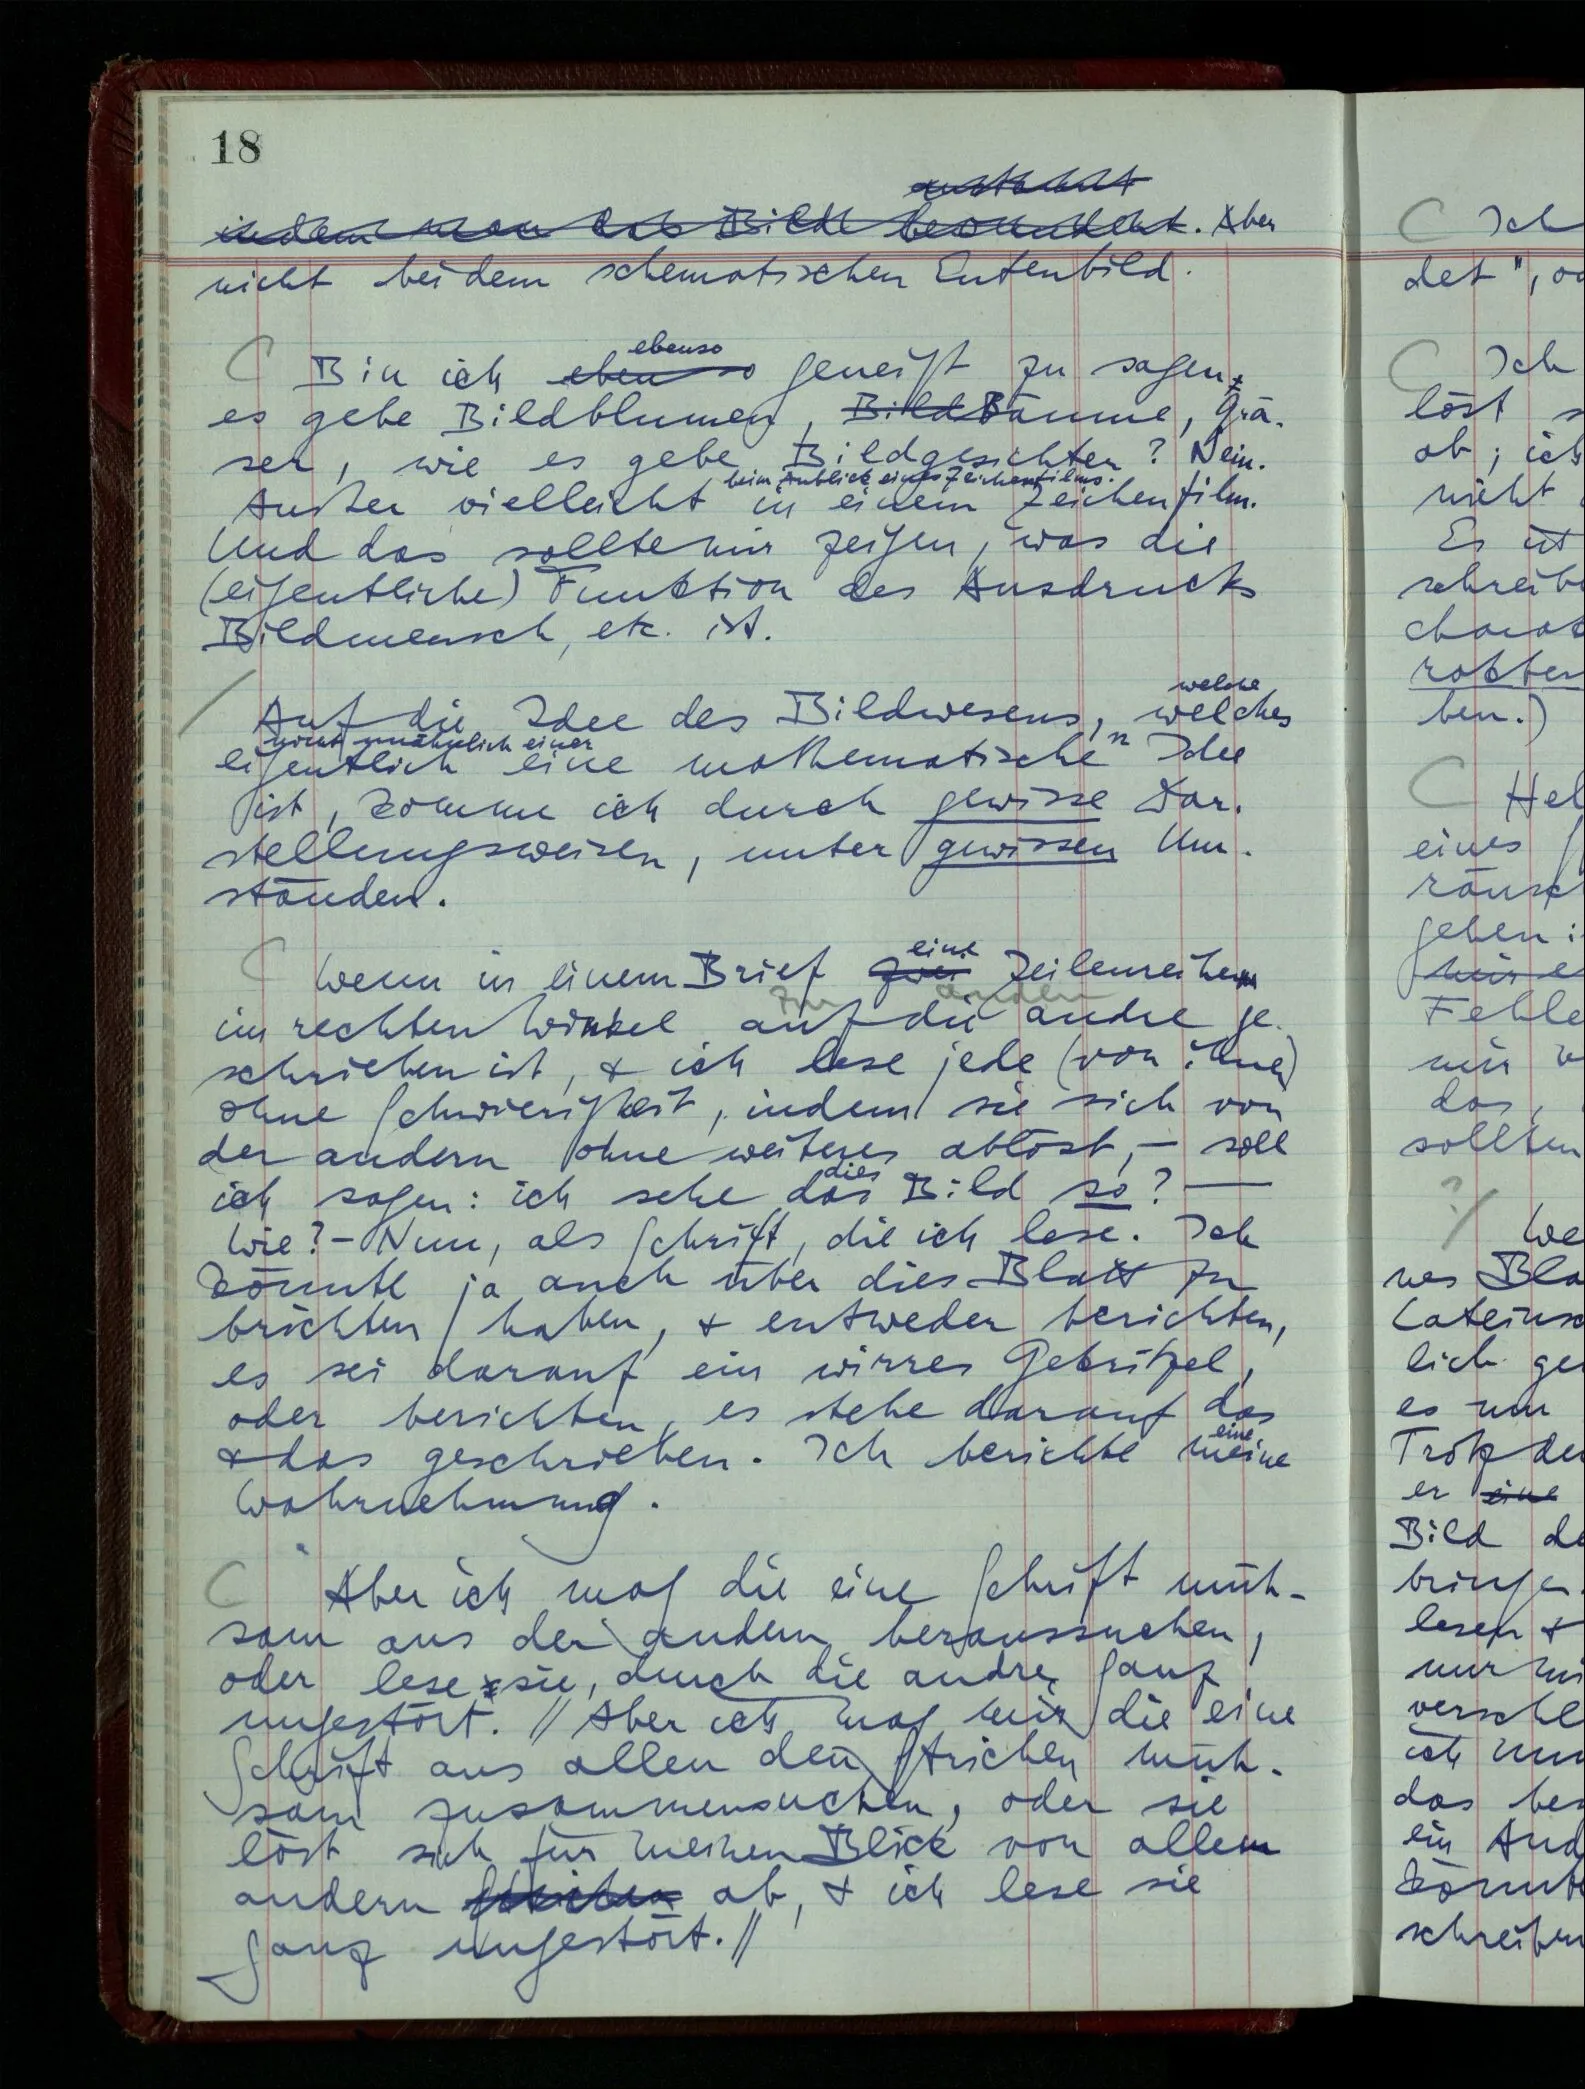 18
anschaut
indem man das Bild bewundert. Aber
nicht bei dem schematischen Entenbild.
ebenso
C Bin ich eben so geneigt zu sagen,
es gebe Bildblumen, Bild Bäume, Grä-
ser, wie es gebe Bildgesichter? Nein.
beim Anblick eines Zeichenfilms.
Außer vielleicht in einem Zeichenfilm.
Und das sollte mir zeigen, was die
(eigentliche) Funktion des Ausdrucks
Bildmensch, etc. ist.
welche
/ Auf die Idee des Bildwesens, welches
nicht unähnlich einer n
eigentlich eine mathematische Idee
ist, komme ich durch gewisse Dar-
stellungsweisen, unter gewissen Um-
ständen.
eine
C Wenn in einem Brief zwei Zeilenreihen
zur andern
im rechten Winkel auf die andre ge-
schrieben ist, & ich lese jede (von ihnen)
ohne Schwierigkeit, indem sie sich von
der andern ohne weiteres ablöst, – soll
dies
ich sagen: ich sehe das Bild so? —
Wie? – Nun, als Schrift, die ich lese. Ich
könnte ja auch über dies Blatt zu
brichten haben, & entweder berichten,
es sei darauf ein wirres Gekritzel,
oder berichten, es stehe darauf das
eine
& das geschrieben. Ich berichte meine
Wahrnehmung.
C Aber ich mag die eine Schrift müh-
sam aus der andern heraussuchen,
oder lese sie, durch die andre, ganz
ungestört. // Aber ich mag mir die eine
Schrift aus allen den Strichen müh-
sam zusammensuchen, oder sie
löst sich für meinen Blick von allem
andern Strichen ab, & ich lese sie
ganz ungestört. //
C Ich
det", od
C Ich
löst s
ab; ich
nicht
Es ist
schreib
charak
ben.)
C Hel
eines
räusch
geben i
Fehle
mir
das,
sollten
?/ We
nes Bla
Lateinsc
lich ge
es um
Trotzdem
er eine
Bild de
bringen
lesen &
nur
verschl
ich nun
das be
ein And
könnte
schreiben